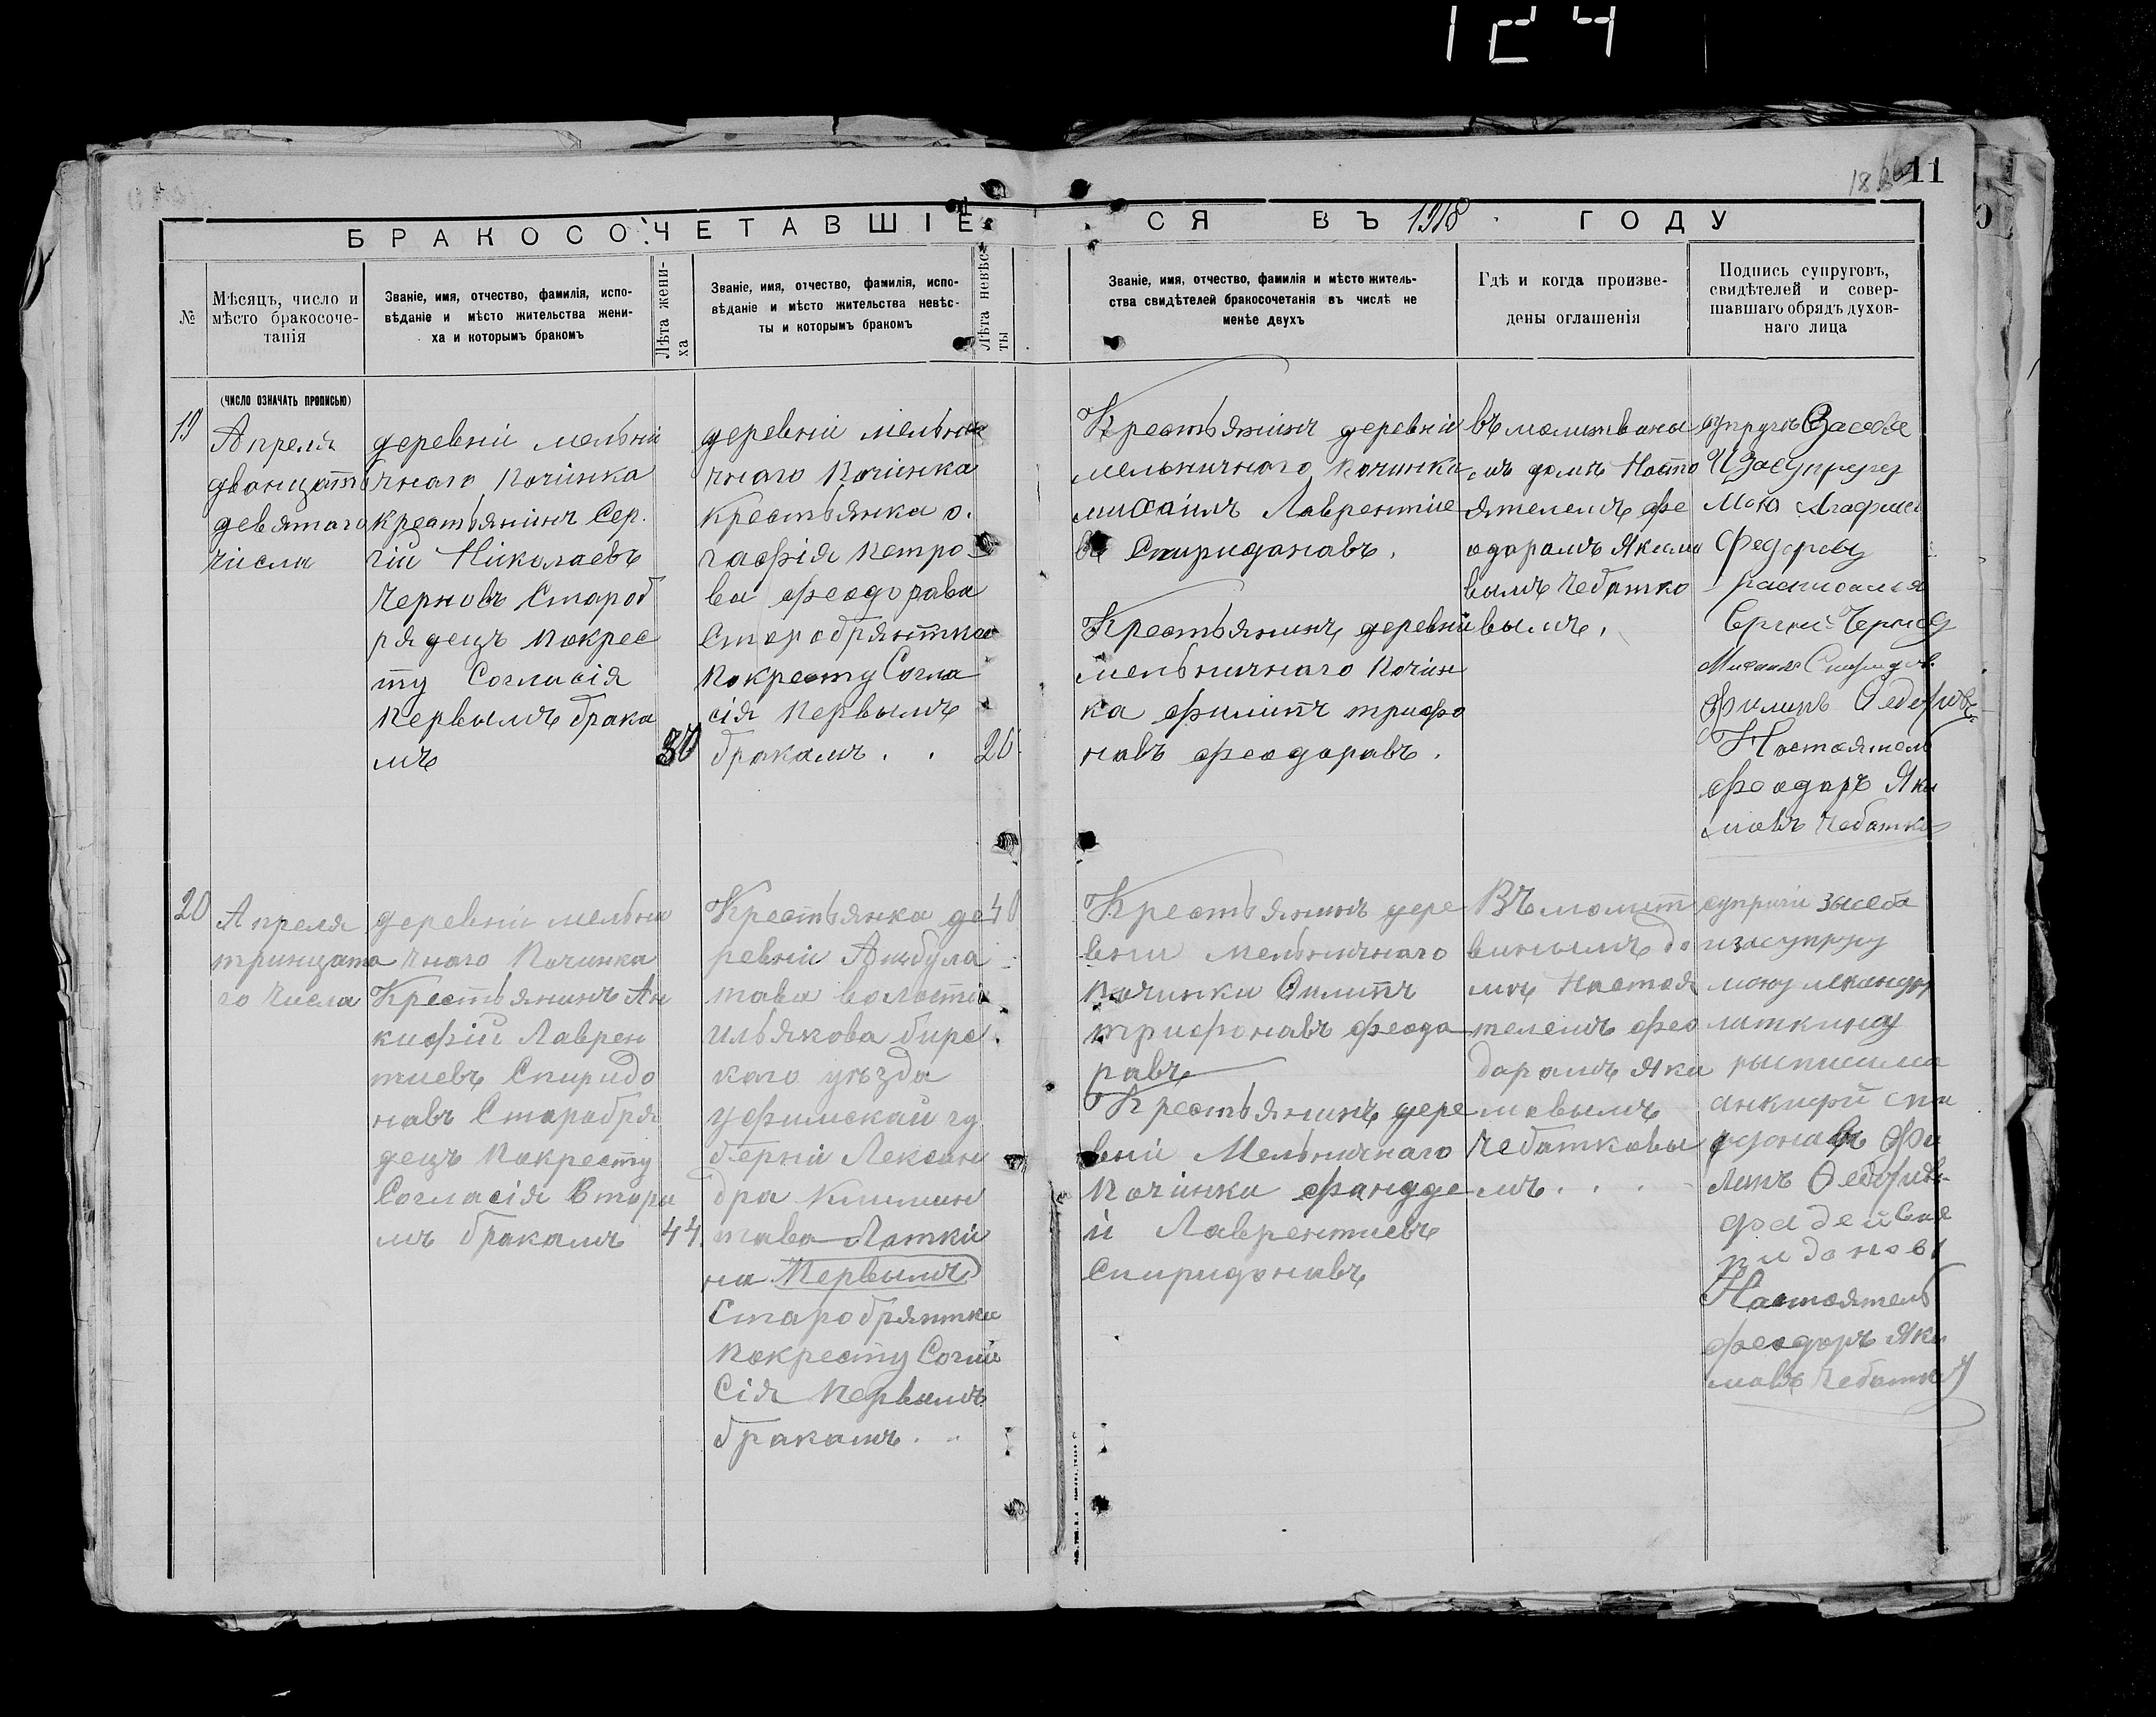 124
11
БРАКОСОЧЕТАВШІЕСЯ ВЪ 1918 ГОДУ
№
Мѣсяцъ, число и
мѣсто бракосоче-
танія
Званіе, имя, отчество, фамилія, испо-
вѣданіе и мѣсто жительства жени-
ха и которымъ бракомъ
Лѣта жени-
ха
Званіе, имя, отчество, фамилія, испо-
вѣданіе и мѣсто жительства невѣс-
ты и которымъ бракомъ
Лѣта невѣс-
ты
Званіе, имя, отчество, фамилія и мѣсто житель-
ства свидѣтелей бракосочетанія въ числѣ не
менѣе двухъ
Гдѣ и когда произве-
дены оглашенія
Подпись супруговъ,
свидѣтелей и совер-
шавшаго обрядъ духов-
наго лица
(ЧИСЛО ОЗНАЧАТЬ ПРОПИСЬЮ)
19
Апреля
дванцато
девятаго
числа
деревніи мельни
чнаго Починка
крестьянинъ Сер.
гій Николаевъ
Черновъ Староб
рядецъ Покрес
ту Согласія
Первымъ брака
мъ
30
деревніи мельни
чнаго Починка
крестьянка о.
гафія Петро
ва феодорава
Старобрятка
Покресту Согла
сія Первымъ
бракамъ . .
26
Крестьянинъ деревніи
мельничнаго Починка
михаилъ Лаврентие
въ Спиридонавъ.
Крестьянинъ деревни
мельничнаго Почин
ка филипъ трифо
навъ феодаравъ.
въ молитваны
мъ домѣ Насто
ятелемъ фе
одарамъ Якима
вымъ Чебатко
вымъ.
супругъ Засебе
И Засупругу
Мою Агафию
Федорову
расписался
Сергий Чернов
Михаилъ Спиридонов
Филипъ Федоровъ
Настоятель
феодаръ Яки
мавъ Чебатков
20
Апреля
трицата
го Числа
деревніи мельни
чнаго Починка
Крестьянинъ Ан
кифій Лаврен
тиевъ Спиридо
навъ Старабря
децъ Покресту
Согласія Втары
мъ бракамъ
44.
Крестьянка де
ревніи Анбула
това воласти
ильякова бирс
каго уѣзда
уфимскай гу
берніи Лексан
дра Климин
тава Латки
на Первымъ
Старобрятка
Покресту Согла
Сія Первымъ
бракамъ . .
40
Крестьянинъ дере
вни мельничнаго
Починка Филипъ
трифонавъ феода
равъ
Крестьянинъ дере
вніи Мельничнаго
Починка фандде
й Лаврентиевъ
Спиридонавъ
Въ молит
винымъ до
мѣ Настоя
телемъ фео
дарамъ Яки
мовымъ
Чебатковы
мъ. . .
супругіи засебя
изасупругу
мою лександру
латкину
анкифій спи
ридонавъ Фи
липъ Федоровъ
фадей Спи
ридоновъ
Настоятель
феодаръ Яки
мавъ Чебатков